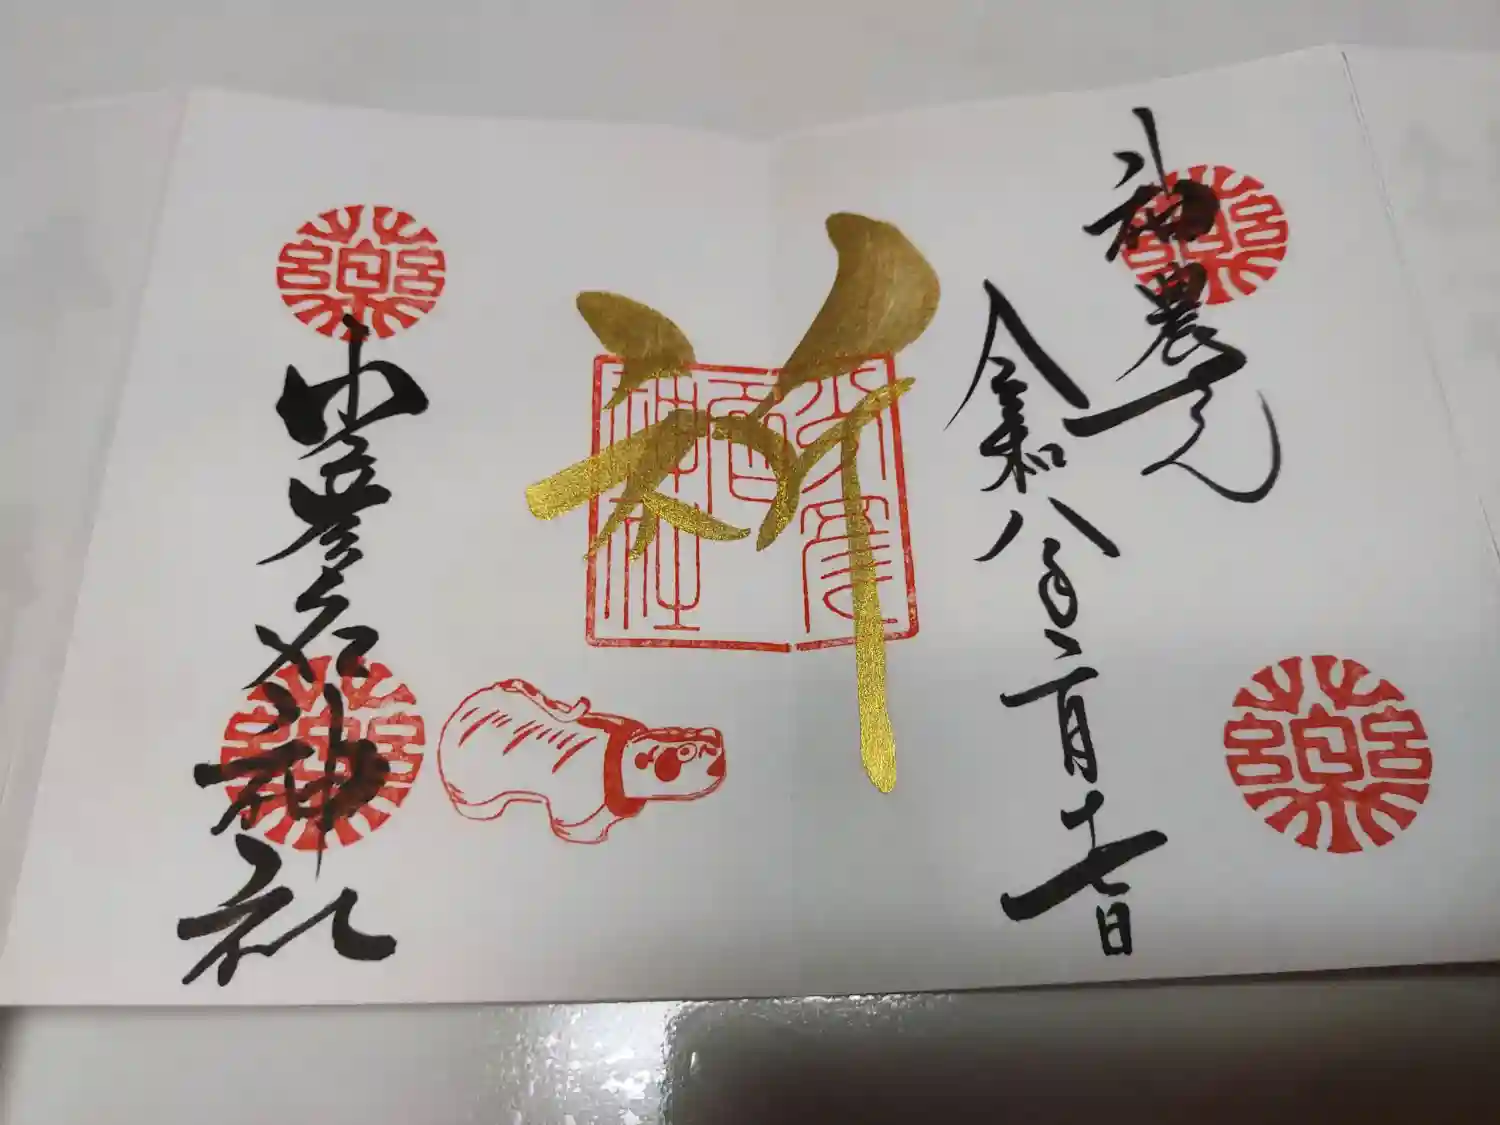 神農さん
令和八年二月十七日
祈
少彦名神社
少彦名神社